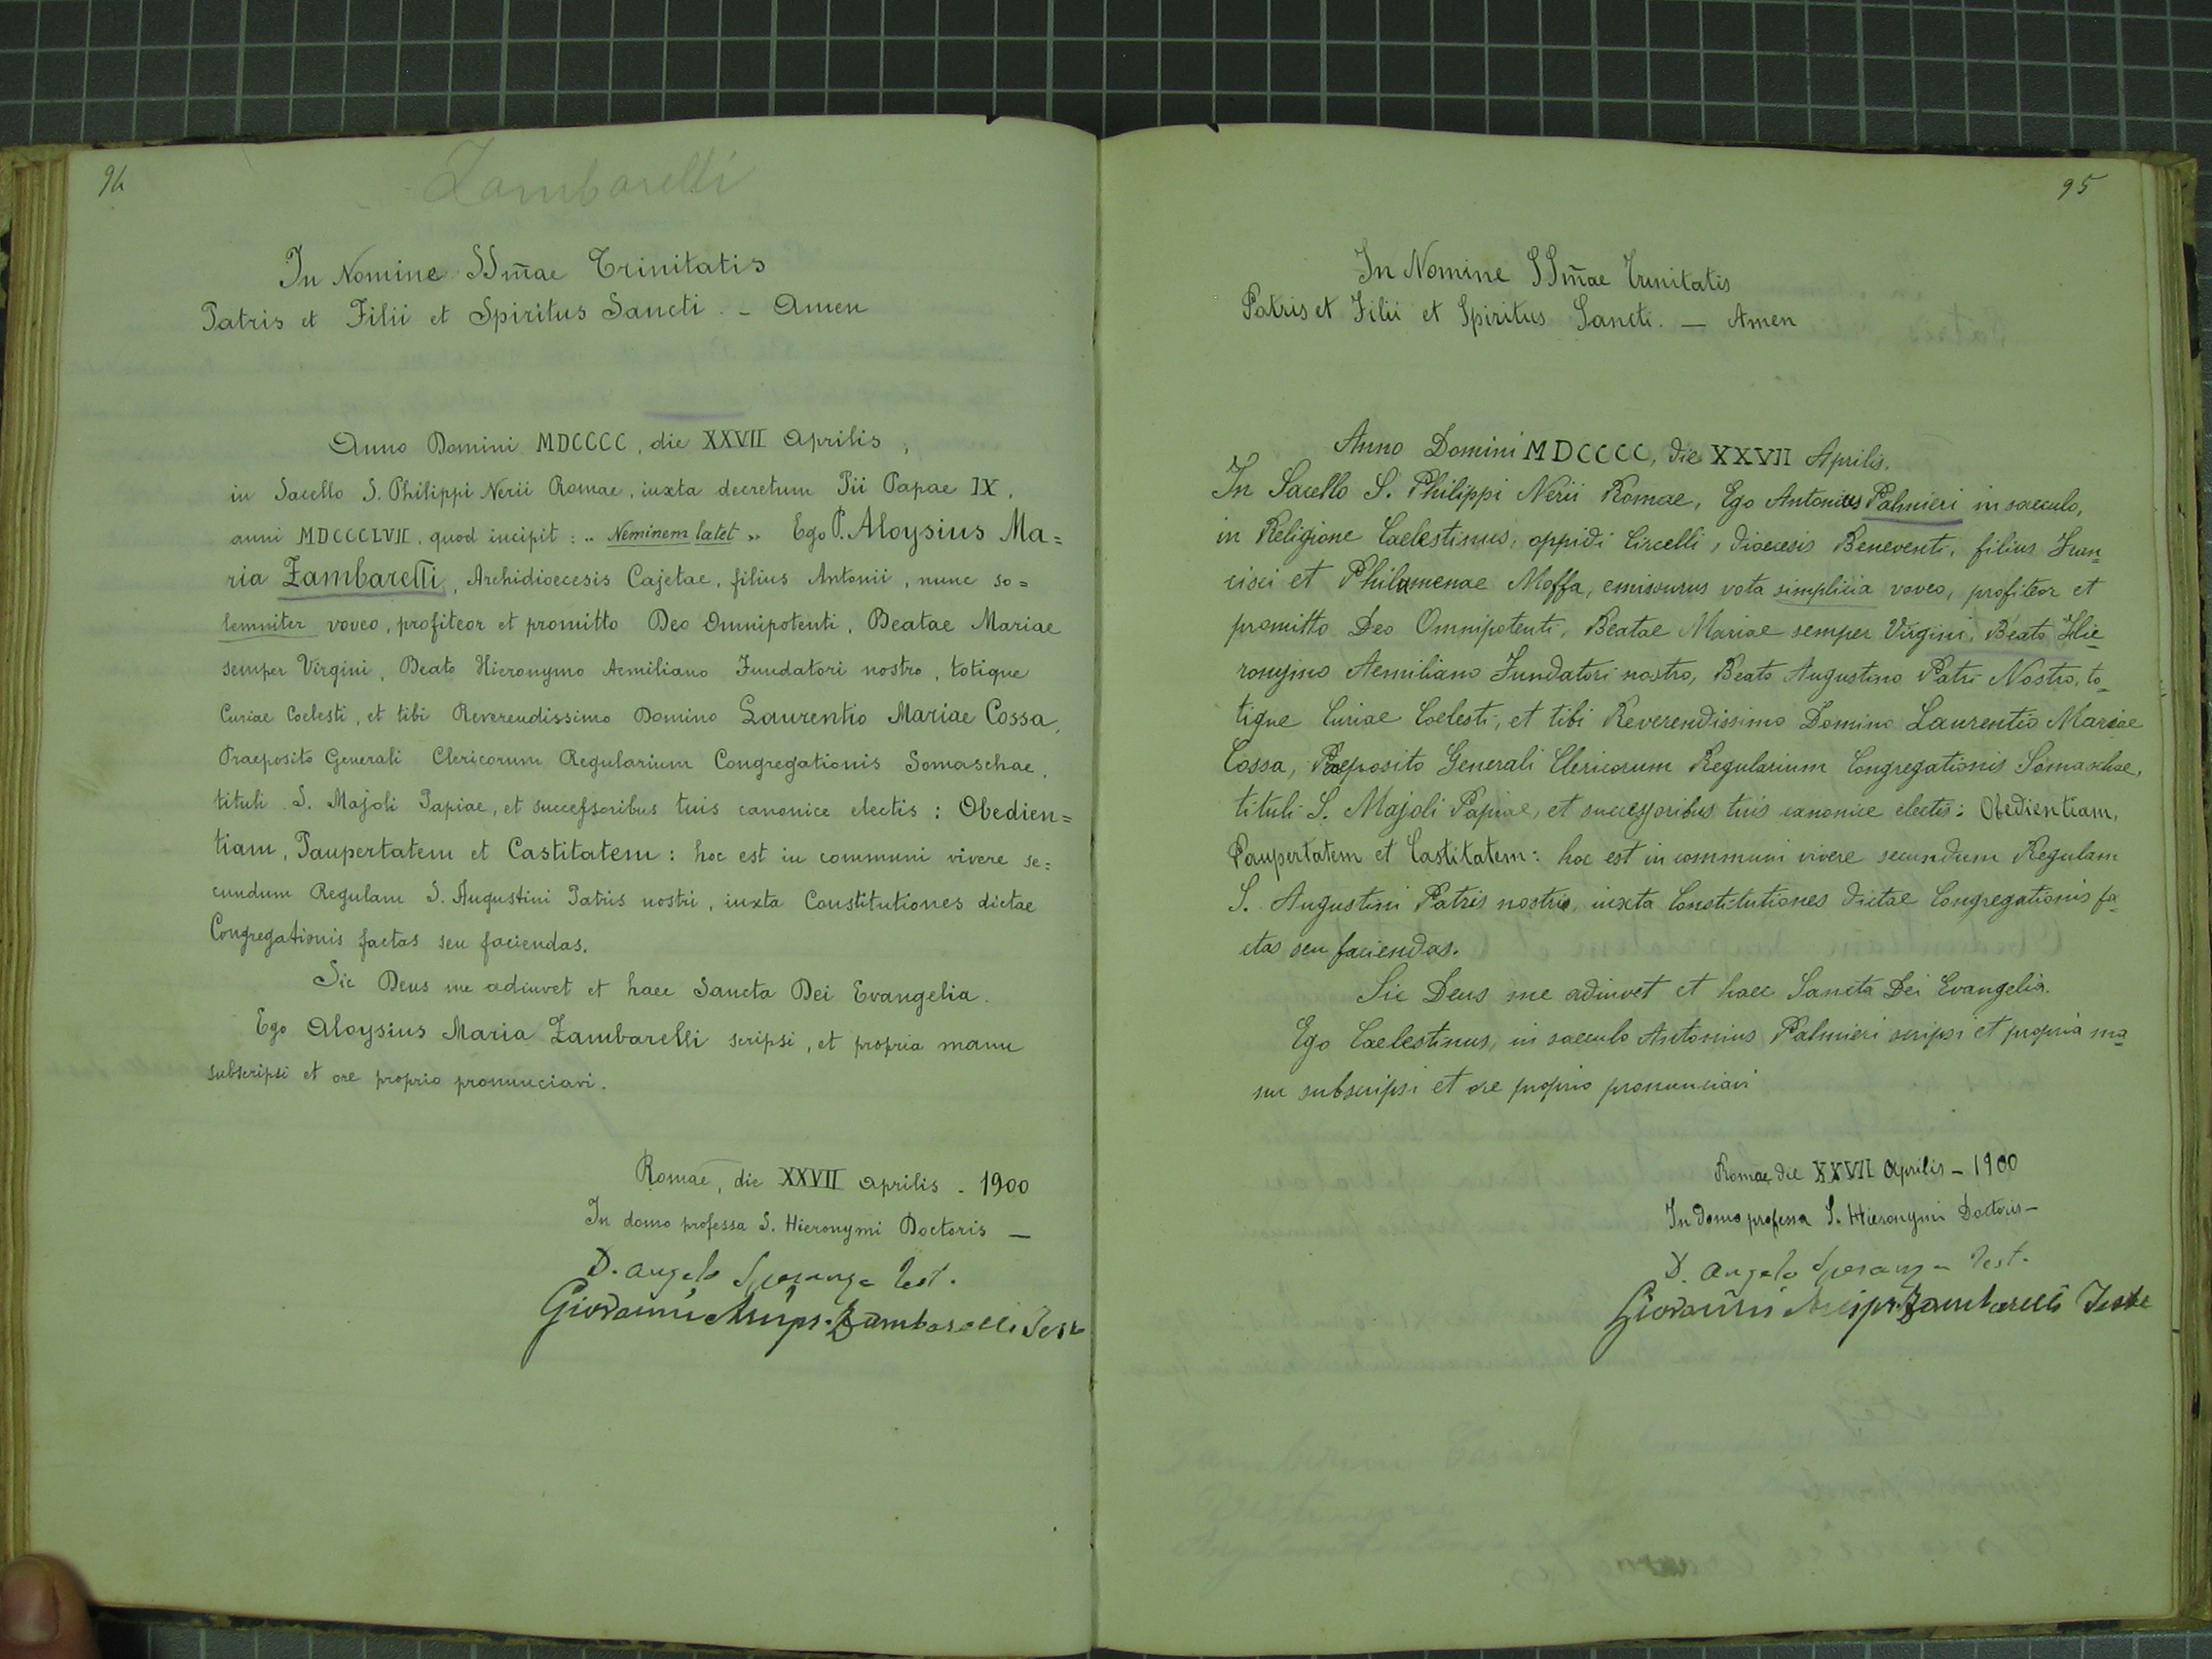 94
Zambarelli
In Nomine SSm̃ae Trinitatis
Patris et Filii et Spiritus Sancti. - Amen
Anno Domini MDCCCC, die XXVII Aprilis,
in Sacello S. Philippi Nerii Romae, iuxta decretum Pii Papae IX,
anni MDCCCLVII, quod incipit: „ Neminem latet „ Ego P. Aloysius Ma=
ria Zambarelli, Archidioecesis Cajetae, filius Antonii, nunc so=
lemniter voveo, profiteor et promitto Deo Omnipotenti, Beatae Mariae
semper Virgini, Beato Hieronymo Aemiliano Fundatori nostro, totique
Curiae Coelesti, et tibi Reverendissimo Domino Laurentio Mariae Cossa,
Praeposito Generali Clericorum Regularium Congregationis Somaschae,
tituli S. Majoli Papiae, et successoribus tuis canonice electis: Obedien=
tiam, Paupertatem et Castitatem: hoc est in communi vivere se=
cundum Regulam S. Augustini Patris nostri, iuxta Constitutiones dictae
Congregationis factas seu faciendas.
Sic Deus me adiuvet et haec Sancta Dei Evangelia.
Ego Aloysius Maria Zambarelli scripsi, et propria manu
subscripsi et ore proprio pronunciavi.
Romae, die XXVII Aprilis - 1900
In domo professa S. Hieronymi Doctoris —
D. Angelo Speranza Test.
Giovanni Zambarelli Test
95
In Nomine SSm̃ae Trinitatis
Patris et Filii et Spiritus Sancti. — Amen
Anno Domini MDCCCC, die XXVII Aprilis.
In Sacello S. Philippi Nerii Romae, Ego Antonius Palmieri in saeculo,
in Religione Caelestinus, oppidi Circelli, dioecesis Beneventi, filius Fran-
cisci et Philumenae Moffa, emissurus vota simplicia voveo, profiteor et
promitto Deo Omnipotenti, Beatae Mariae semper Virgini, Beato Hie-
ronymo Aemiliano Fundatori nostro, Beato Augustino Patri Nostro, to-
tique Curiae Coelesti, et tibi Reverendissimo Domino Laurentio Mariae
Cossa, Praeposito Generali Clericorum Regularium Congregationis Somaschae,
tituli S. Majoli Papiae, et successoribus tuis canonice electis: Obedientiam,
Paupertatem et Castitatem: hoc est in communi vivere secundum Regulam
S. Augustini Patris nostri, iuxta Constitutiones dictae Congregationis fa-
ctas seu faciendas.
Sic Deus me adiuvet et haec Sancta Dei Evangelia.
Ego Caelestinus, in saeculo Antonius Palmieri scripsi et propria ma-
nu subscripsi et ore proprio pronunciavi
Romae die XXVII Aprilis - 1900
In domo professa S. Hieronymi Doctoris -
D. Angelo Speranza Test.
Giovanni Zambarelli Teste